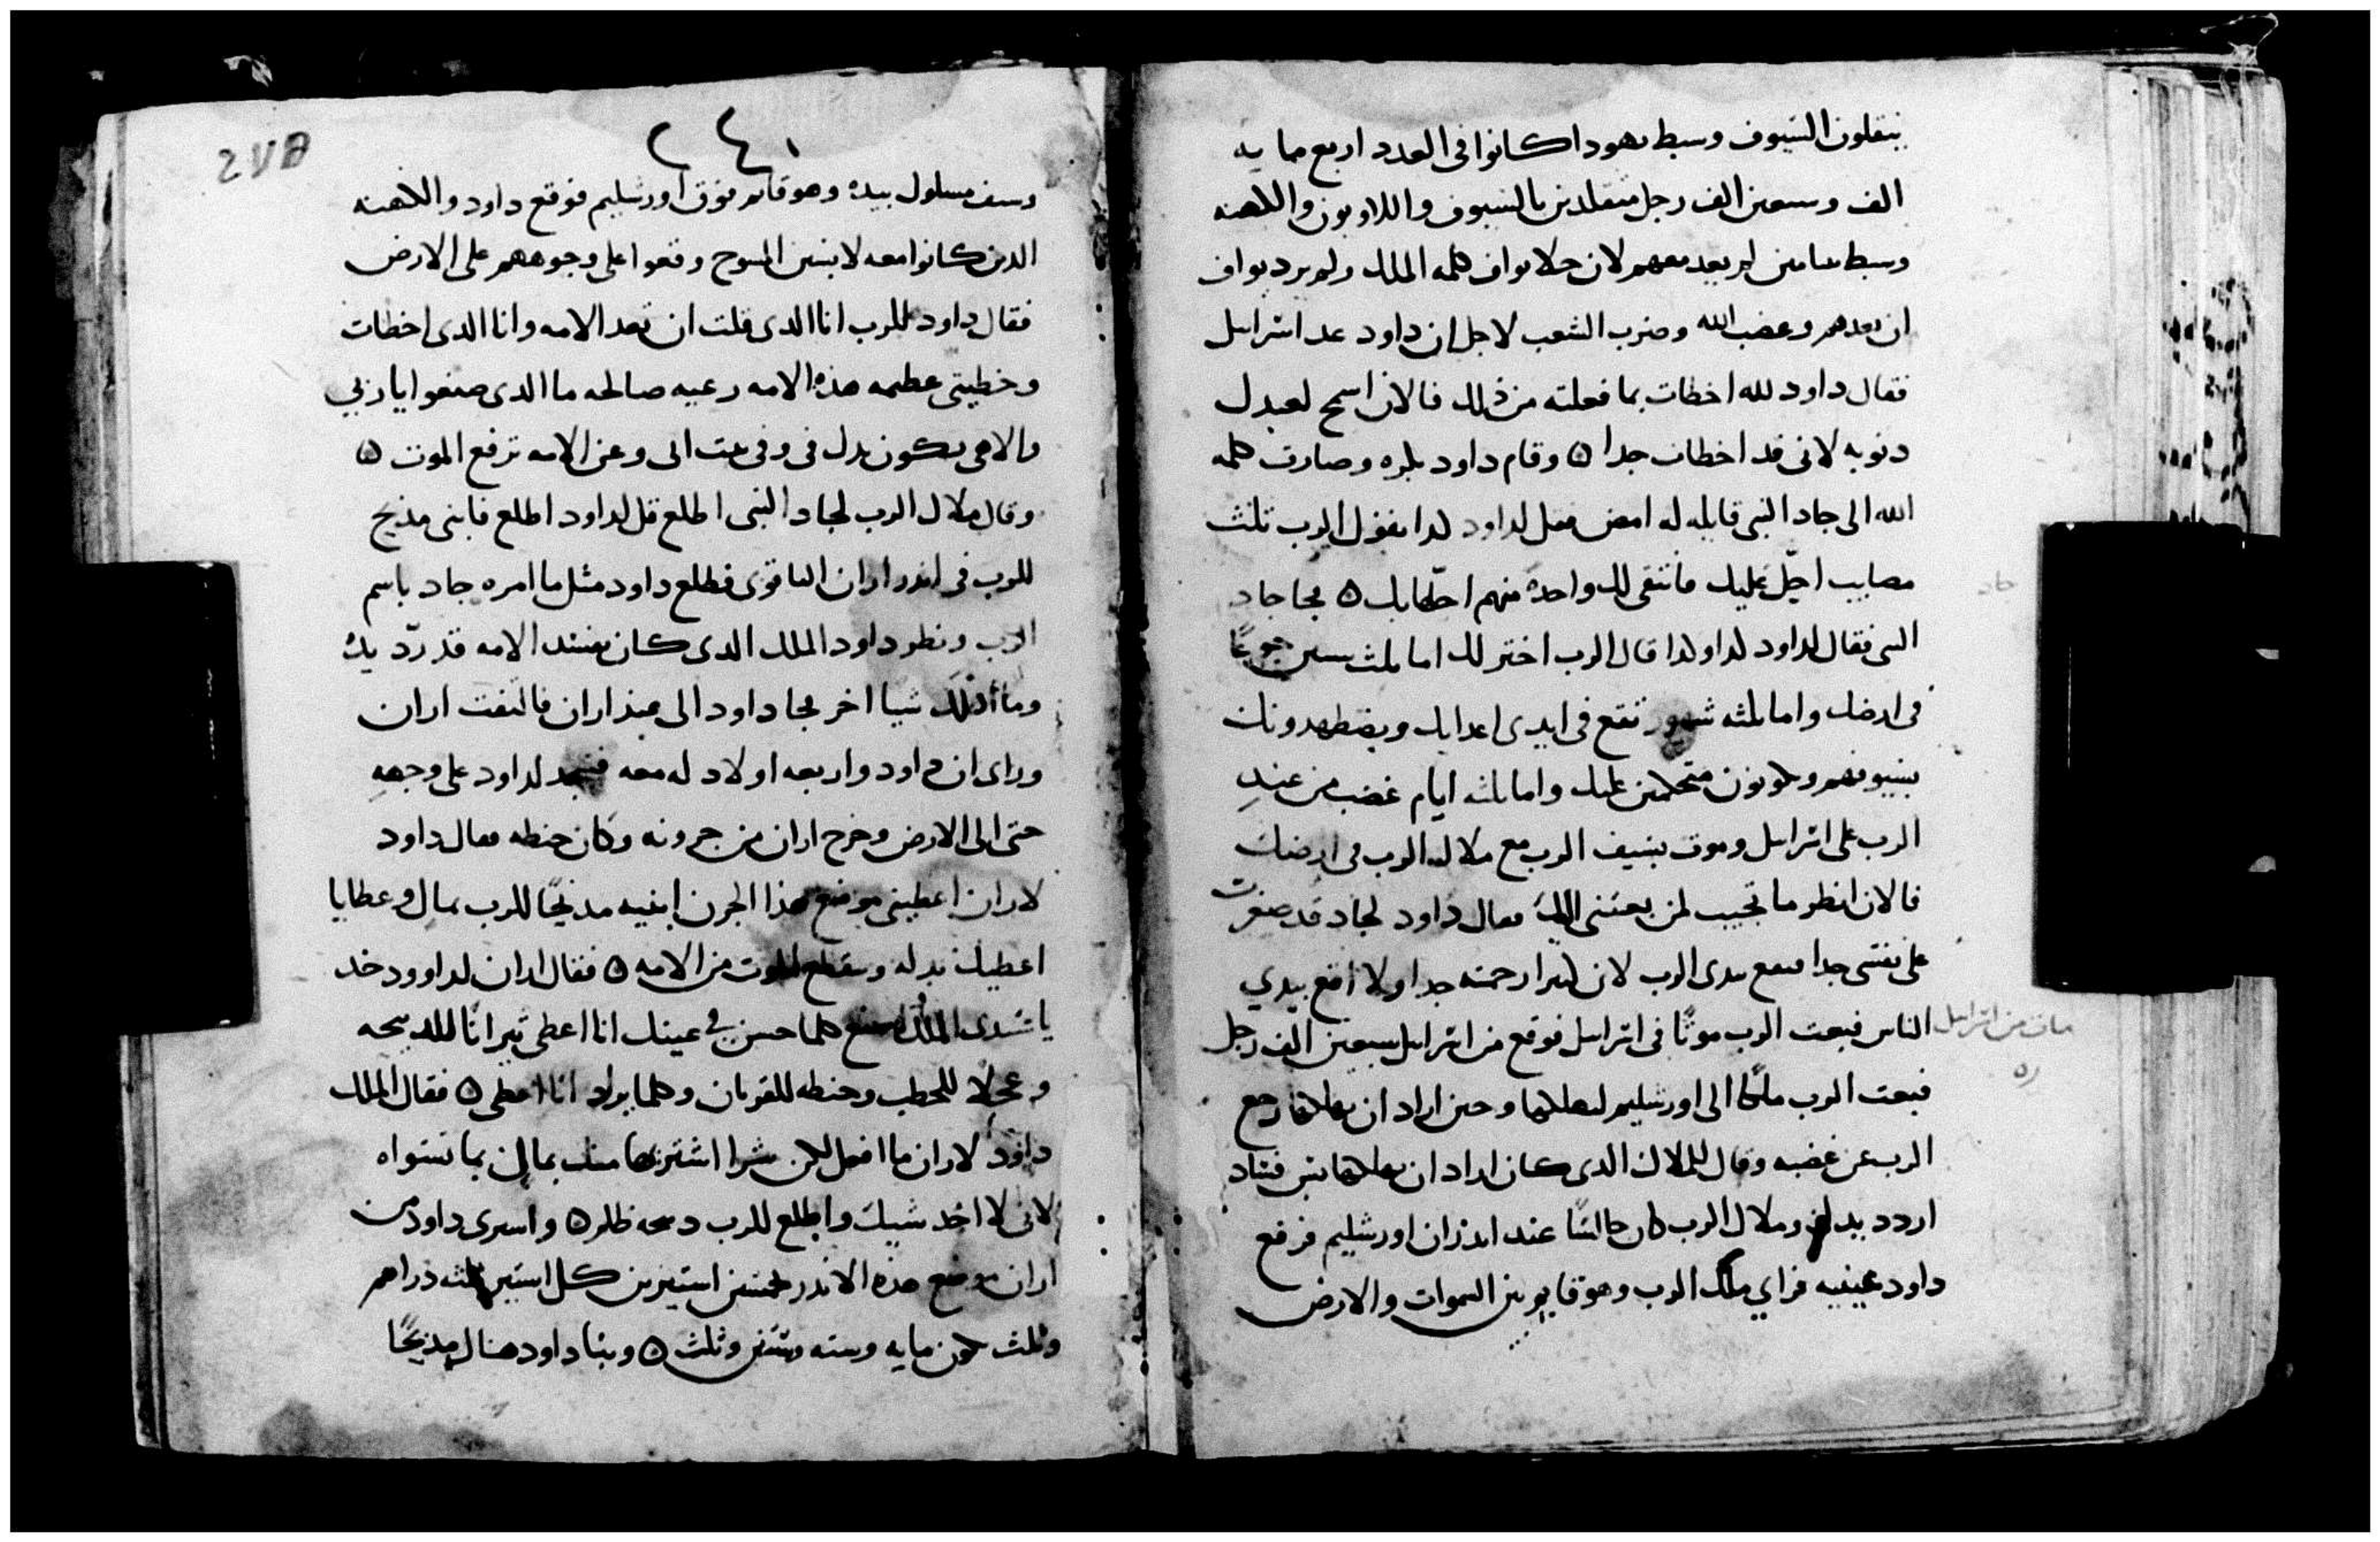 ينقلون السيوف وسبط يهودا كانوا في العدد اربع مايه
الف وسبعين الف رجل متقلدين بالسيوف واللاويون والكهنه
وسبط بنيامين لم يعد معهم لان يواف كلمه الملك ولم يرد يواف
ان يعدهم وغضب الله وضرب الشعب لاجل ان داود عد اسراىىل
فقال داود لله اخطات بما فعلته من ذلك فالان اسمح لعبدك
ذنوبه لاني قد اخطات جدا ۵ وقام داود بكره وصارت كلمه
الله الى جاد النبي قايله له امض فقل لداود كدا يقول الرب ثلث
مصايب احل عليك فانتقى لك واحدة منهم احلها بك ۵ فجا جاد
النبي فقال لداود كدا قال الرب اختر لك اما ثلث سنين جوعًا
في ارضك واما ثلثه شهور تقع في ايدي اعدايك ويضطهدونك
بسيوفهم ويكونون متحكمين عليك واما ثلثه ايام غضب من عند
الرب على اسراىىل وموت بسيف الرب مع ملاك الرب في ارضك
فالان انظر ما تجيب لمن بعثني اليك فقال داود لجاد قد صغرت
على نفسي جدا فنقع بيدي الرب لان كبرا رحمته جدا ولا اقع بيدي
الناس فبعت الرب موتًا في اسراىىل فوقع من اسراىىل سبعين الف رجل
مات من اسراىىل
فبعت الرب ملاكًا الى اورشليم ليهلكها وحين اراد ان يهلكها رجع
الرب عن غضبه وقال للملاك الدي كان اراد ان يهلكها
اردد يدك وملاك الرب كان جالسًا عند اورشليم فرفع
داود عينيه فراي ملك الرب وهو قايم بين السموات والارض
جاد
٢٤٠
وسيف مسلول بيده وهو قايم فوق اورشليم فوقع داود والكهنه
الدين كانوا معه لابسين المسوح وقعوا على وجوههم على الارض
فقال داود للرب انا الدي قلت ان تعد الامه وانا الدي اخطات
وخطيتي عظيمه هذه الامه رعيه صالحه ما الدي صنعوا يا ربي
والاهي يكون يدك في وفي بيت ابي وعن الامه ترفع الموت ۵
وقال ملاك الرب لجاد النبي اطلع قل لداود اطلع فابنى مذبح
للرب في اندر اران الياقوى فطلع داود مثل ما امره جاد باسم
الرب ونظر داود الملك الدي كان يفسد الامه قد ردّ يده
وما شيا اخر فجا داود الى عند اران فالتفت اران
وراى ان داود واربعه اولاد له معه فسجد لداود على وجهه
حتى الى الارض وخرج اران من جرونه وكان حنطه فقال داود
لاران اعطيني موضع هذا الجرن ابنيه مذبحًا للرب بمال وعطايا
اعطيك بدله وينقطع الموت من الامه ۵ فقال اران لداوود خد
يا سيدي الملك اصنع كلما حسن في عينك انا اعطي تيرانًا للدبيحه
وعجلا للحطب وحنطه للقربان وكلما يراد انا اعطي ۵ فقال الملك
داود لاران ما افعل لكن شرا اشتريها منك بمالي بما تسواه
لاني لا اخد شيك واطلع للرب دبيحه ۵ واسرى داود من
اران موضع هذه الاندر بخمسين استيرين كل استير ثلثه دراهم
وثلث يكون مايه وسته وستين وثلث ۵ وبنا داود هناك مذبحًا